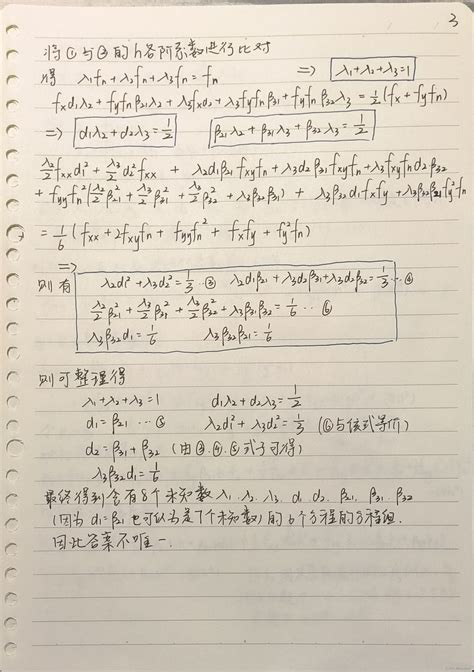 3
将①与②的h各阶系数进行比对
得 λ₁fn+λ₂fn+λ₃fn=fn ⇒ λ₁+λ₂+λ₃=1
fxd₁λ₂+fyfnβ₂₁λ₂+λ₃fxd₂+λ₃fyfnβ₃₁+fyfnβ₃₂λ₃=1/2(fx+fyfn)
⇒ d₁λ₂+d₂λ₃=1/2 β₂₁λ₂+β₃₁λ₃+β₃₂λ₃=1/2
λ₂/2 fxxd₁²+λ₃/2 d₂²fxx + λ₂d₁β₂₁fxyfn+λ₃d₂β₃₁fxyfn+λ₃fxyfnd₂β₃₂
+fyyfn²(λ₂/2 β₂₁²+λ₃/2 β₃₁²+λ₃/2 β₃₂²+λ₃β₃₂β₃₁) + λ₃β₃₂d₁fxfy+λ₃β₃₂β₂₁fy²fn
=1/6(fxx+2fxyfn+fyyfn²+fxfy+fy²fn)
⇒
则有 λ₂d₁²+λ₃d₂²=1/3…③ λ₂d₁β₂₁+λ₃d₂β₃₁+λ₃d₂β₃₂=1/3…④
λ₂/2 β₂₁²+λ₃/2 β₃₁²+λ₃/2 β₃₂²+λ₃β₃₁β₃₂=1/6…⑥
λ₃β₃₂d₁=1/6 λ₃β₃₂β₂₁=1/6
则可整理得
λ₁+λ₂+λ₃=1 d₁λ₂+d₂λ₃=1/2
d₁=β₂₁…⑤ λ₂d₁²+λ₃d₂²=1/3 (⑥与该式等价)
d₂=β₃₁+β₃₂ (由③、④、⑤式子可得)
λ₃β₃₂d₁=1/6
最终得到含有8个未知数λ₁ λ₂ λ₃ d₁ d₂ β₂₁ β₃₁ β₃₂
(因为d₁=β₂₁也可认为是7个未知数)的6个方程的方程组.
因此答案不唯一.